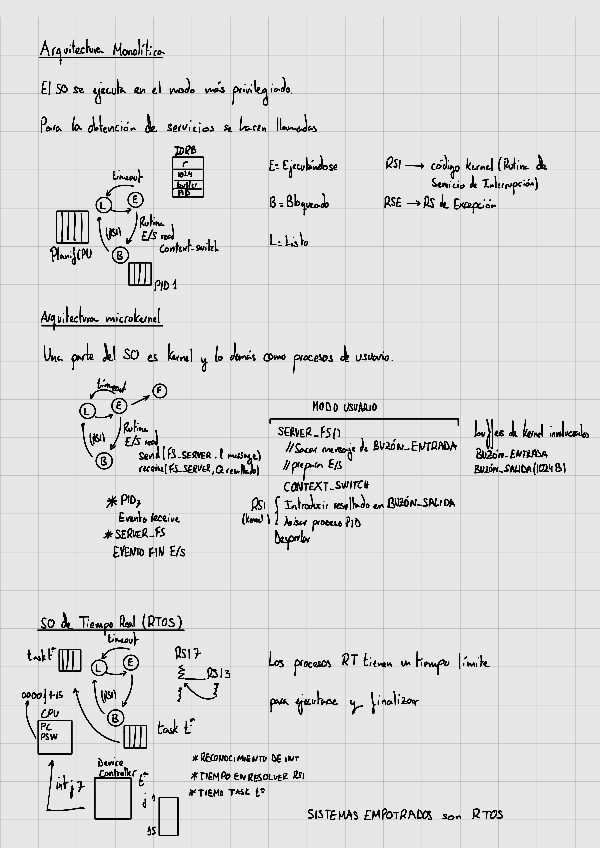 Arquitectura Monolítica
El SO se ejecuta en el modo más privilegiado.
Para la obtención de servicios se hacen llamadas
IORB
r
1024
buffer
PID
timeout
L
E
B
(RSI)
Rutina
E/S read
Context-switch
Planif CPU
PID 1
E = Ejecutándose
B = Bloqueado
L = Listo
RSI → código Kernel (Rutina de
Servicio de Interrupción)
RSE → RS de Excepción
Arquitectura microkernel
Una parte del SO es Kernel y lo demás como procesos de usuario.
timeout
L
E
F
B
(RSI)
Rutina
E/S read
send (FS_SERVER, message)
receive (FS_SERVER, resultado)
* PID
Evento receive
* SERVER_FS
EVENTO FIN E/S
MODO USUARIO
SERVER_FS()
// Sacar mensaje de BUZÓN_ENTRADA
// prepara E/S
CONTEXT_SWITCH
RSI
(Kernel)
Introducir resultado en BUZÓN_SALIDA
Avisar proceso PID
Despertar
buffers de Kernel involucrados
BUZÓN_ENTRADA
BUZÓN_SALIDA (1024B)
SO de Tiempo Real (RTOS)
timeout
task tº
L
E
B
(RSI)
RSI 7
RSI 3
CPU
PC
PSW
task tº
int j 7
Device
Controller
tº
j
1
15
* RECONOCIMIENTO DE INT
* TIEMPO EN RESOLVER RSI
* TIEMO TASK tº
Los procesos RT tienen un tiempo límite
para ejecutarse y finalizar
SISTEMAS EMPOTRADOS son RTOS